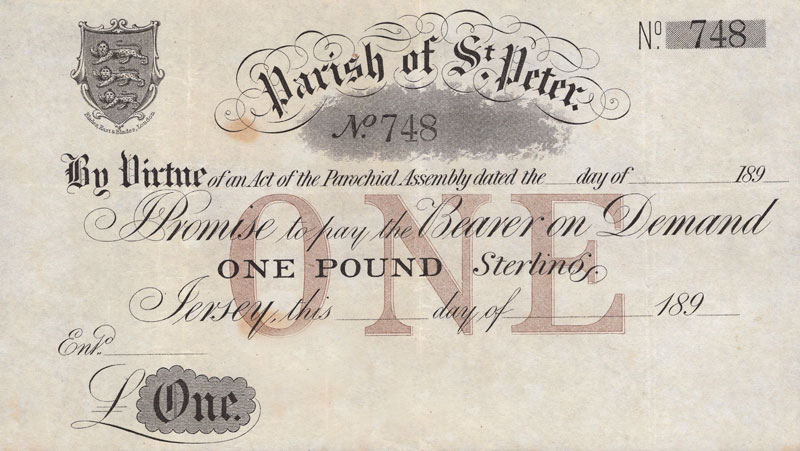 Parish of St. Peter.
No. 748
Blades, East & Blades, London.
No. 748
By Virtue of an Act of the Parochial Assembly dated the day of 189
I Promise to pay the Bearer on Demand
ONE
ONE POUND Sterling.
Jersey, this day of 189
Entd.
£ One.